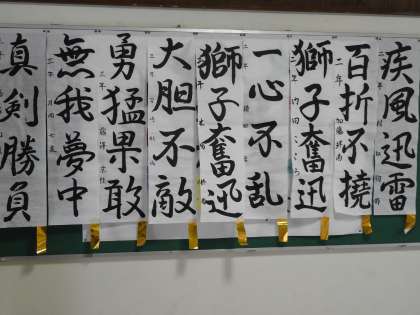 疾風迅雷
百折不撓
二年
獅子奮迅
一心不乱
獅子奮迅
大胆不敵
勇猛果敢
無我夢中
真剣勝負